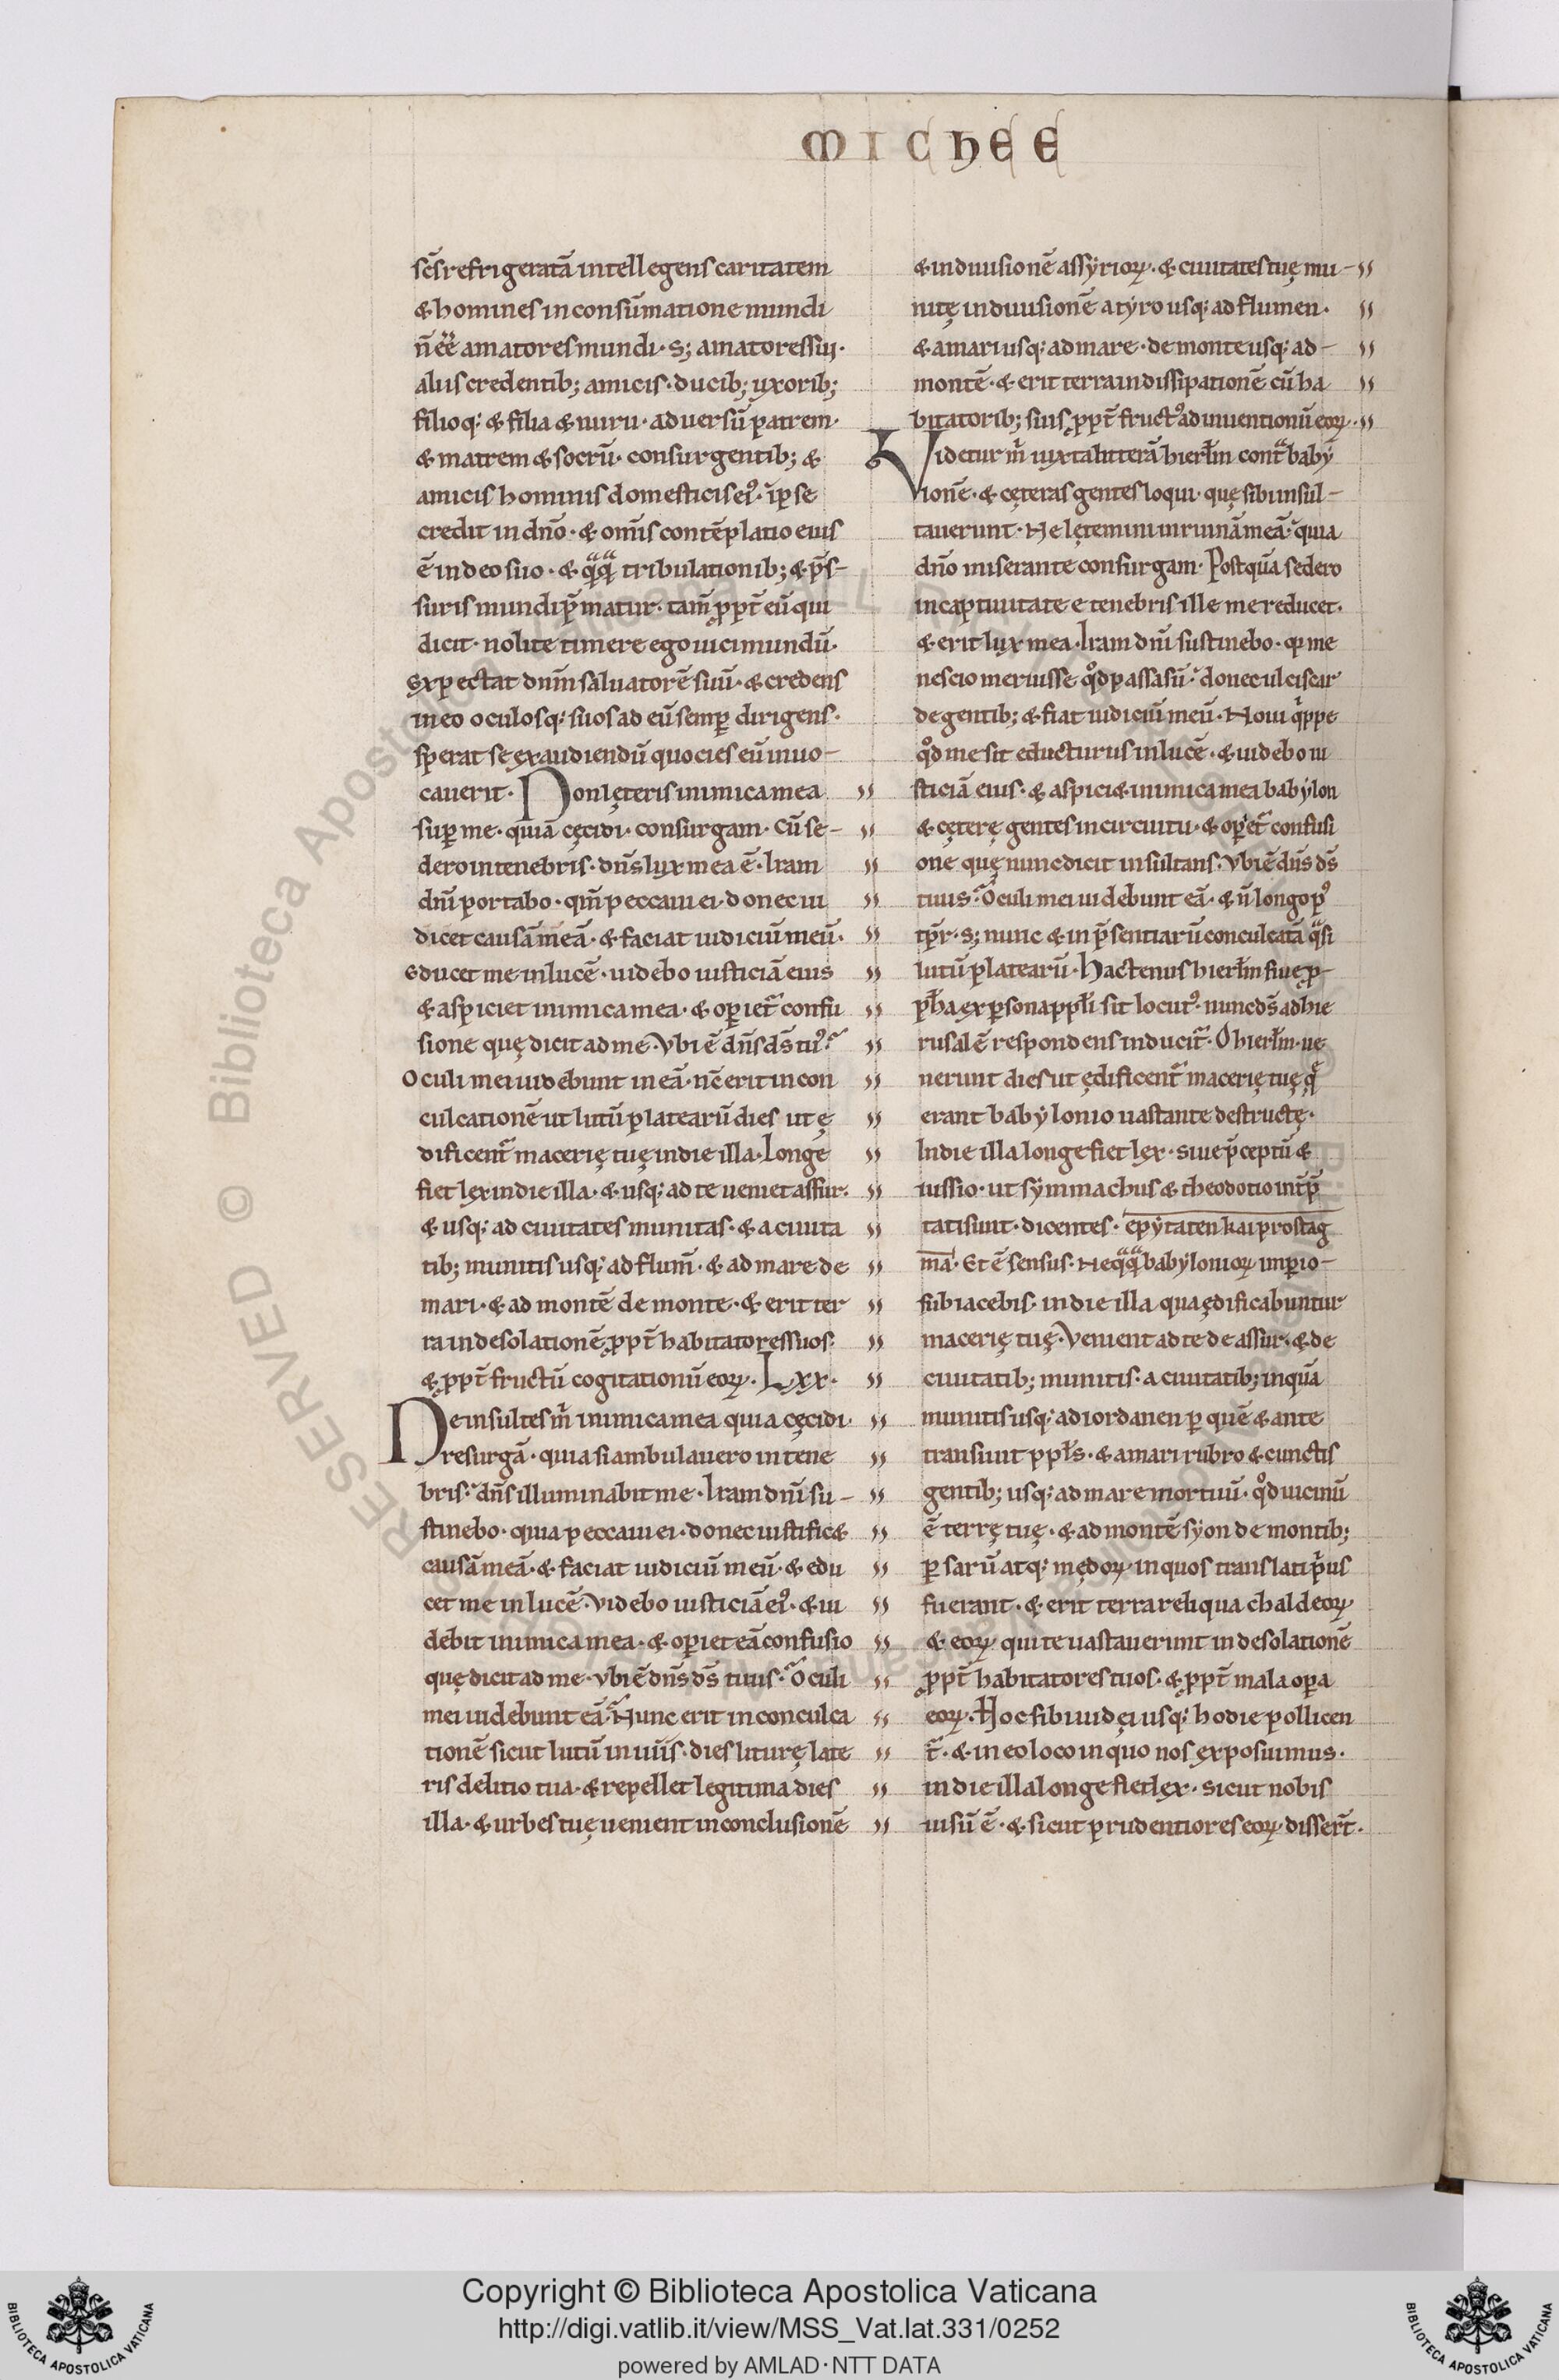 MICHEE
sc̄s refrigeratā intellegens caritatem
& homines in consūmatione mundi
n̄ eē amatores mundi· s; amatores sui·
aliis credentib; amicis· ducib; uxorib;
filioq; & filia & nuru· aduersū patrem·
& matrem & socrū· consurgentib; &
amicis hominis domesticis ei᾽· ip̄se
credit in dn̄o· & om̄is contēplatio eius
ē in deo suo· & q̄q̄ tribulationib; & p̄s-
suris mundi p̄matur· tam̄ ꝓpt̄ eū qui
dicit· nolite timere ego uici mundū·
Expectat dn̄m saluatorē suū· & credens
in eo oculosq; suos ad eū semꝑ dirigens·
sperat se exaudiendū quocies eū inuo-
cauerit· Non lęteris inimica mea
suꝑ me· quiā cęcidi· consurgam· Cū se-
dero in tenebris· dn̄s lux mea ē· Iram
dn̄i portabo· qm̄ peccaui ei· donec iu
dicet causā meā· & faciat iudiciū meū·
Educet me in lucē· uidebo iusticiā eius
& aspiciet inimica mea· & oꝑiet᷑ confu
sione quę dicit ad me· Vbi ē dn̄s ds̄ tu᾽?
Oculi mei uidebunt in eā· nc̄ erit in con
culcationē ut lutū platearū dies ut ę
dificent᷑ macerię tuę in die illa· Longe
fiet lex in die illa· & usq; ad te ueniet assur·
& usq; ad ciuitates munitas· & a ciuita
tib; munitis usq; ad flum̄· & ad mare de
mari· & ad montē de monte· & erit ter
ra in desolationē ꝓpt̄ habitatores suos·
& ꝓpt̄ fructū cogitationū eoꝝ· Lxx·
Ne insultes m̄ inimica mea quia cęcidi·
resurgā· quia si ambulauero in tene
bris· dn̄s illuminabit me· Iram dn̄i su-
stinebo· quia peccaui ei· donec iustific&
causā meā· & faciat iudiciū meū· & edu
cet me in lucē· Videbo iusticiā ei᾽· & ui
debit inimica mea· & oꝑiet eā confusio
quę dicit ad me· Vbi ē dn̄s ds̄ tuus? Oculi
mei uidebunt eā· Nunc erit in conculca
tionē sicut lutū in uiis· dies liturę late
ris delitio tua· & repellet legitima dies
illa· & urbes tuę uenient in conclusionē
& in diuisionē assyrioꝝ· & ciuitates tuę mu-
nitę in diuisionē a tyro usq; ad flumen·
& a mari usq; ad mare· de monte usq; ad-
montē· & erit terra in dissipationē cū ha
bitatorib; suis ꝓpt̄ fruct᾽ adinuentionū eoꝝ·
Videtur m̄ iuxta litterā hierl̄m cont̄ baby
lonē· & cęteras gentes loqui· quę sibi insul-
tauerunt· Ne lętemini in ruinā meā· quia
dn̄o miserante consurgam· Postquā sedero
in captiuitate e tenebris ille me reducet·
& erit lux mea· Iram dn̄i sustinebo· qꝛ me
nescio meruisse qd̄ passa sū· donec ulciscat᷑
de gentib; & fiat iudiciū meū· Noui q̄ppe
qd̄ me sit educturus in lucē· & uidebo iu
sticiā eius· & aspici& inimica mea babylon
& cęterę gentes in circuitu· & oꝑiet᷑ confusi
one quę nunc dicit insultans· Vbi ē dn̄s ds̄
tuus? Oculi mei uidebunt eā· & n̄ longo p᾽
tp̄r· s; nunc & in p̄sentiarū conculcatā q̄si
lutū platearū· Hactenus hierl̄m siue ꝓ-
ph̄a ex ꝑsona ppl̄i sit locut᾽· nunc ds̄ ad hie
rusalē respondens inducit᷑· O hierl̄m· ue
nerunt dies ut ędificent᷑ macerię tuę q̄
erant babylonio uastante destructę·
In die illa longe fiet lex· siue p̄ceptū &
iussio· ut symmachus & theodotio int̄p̄
tati sunt· dicentes· epytaten kai prostag
ma· Et ē sensus· Neq̄q̄ babylonioꝝ imꝑio-
subiacebis· in die illa qua ędificabuntur
macerię tuę· Venient ad te de assur· & de
ciuitatib; munitis· a ciuitatib; inquā
munitis usq; ad iordanen ꝑ quē & ante
transiuit ppl̄s· & a mari rubro & cunctis
gentib; usq; ad mare mortuū· qd̄ uicinū
ē terrę tuę· & ad montē syon de montib;
ꝑsarū atq; mędoꝝ· in quos translati p̄us
fuerant· & erit terra reliqua chaldeoꝝ
& eoꝝ qui te uastauerunt in desolationē
ꝓpt̄ habitatores tuos· & ꝓpt̄ mala oꝑa
eoꝝ· Hoc sibi iudęi usq; hodie pollicen
t᷑· & in eo loco in quo nos exposuimus·
in die illa longe fiet lex· sicut nobis
uisū ē· & sicut prudentiores eoꝝ dissert̄·
Copyright © Biblioteca Apostolica Vaticana
http://digi.vatlib.it/view/MSS_Vat.lat.331/0252
powered by AMLAD·NTT DATA
BIBLIOTECA APOSTOLICA VATICANA
BIBLIOTECA APOSTOLICA VATICANA